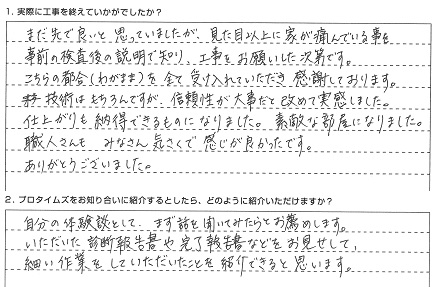 1. 実際に工事を終えていかがでしたか？
まだ先で良いと思っていましたが、見た目以上に家が痛んでいる事を
事前の検査後の説明で知り、工事をお願いした次第です。
こちらの都合(わがまま)を全て受け入れていただき感謝しております。
技術はもちろんですが、信頼性が大事だと改めて実感しました。
仕上がりも納得できるものになりました。素敵な部屋になりました。
職人さんも みなさん気さくで感じが良かったです。
ありがとうございました。
2. プロタイムズをお知り合いに紹介するとしたら、どのように紹介いただけますか？
自分の体験談として、まず話を聞いてみたらとお薦めします。
いただいた診断報告書や完了報告書などをお見せして、
細い作業をしていただいたことを紹介できると思います。